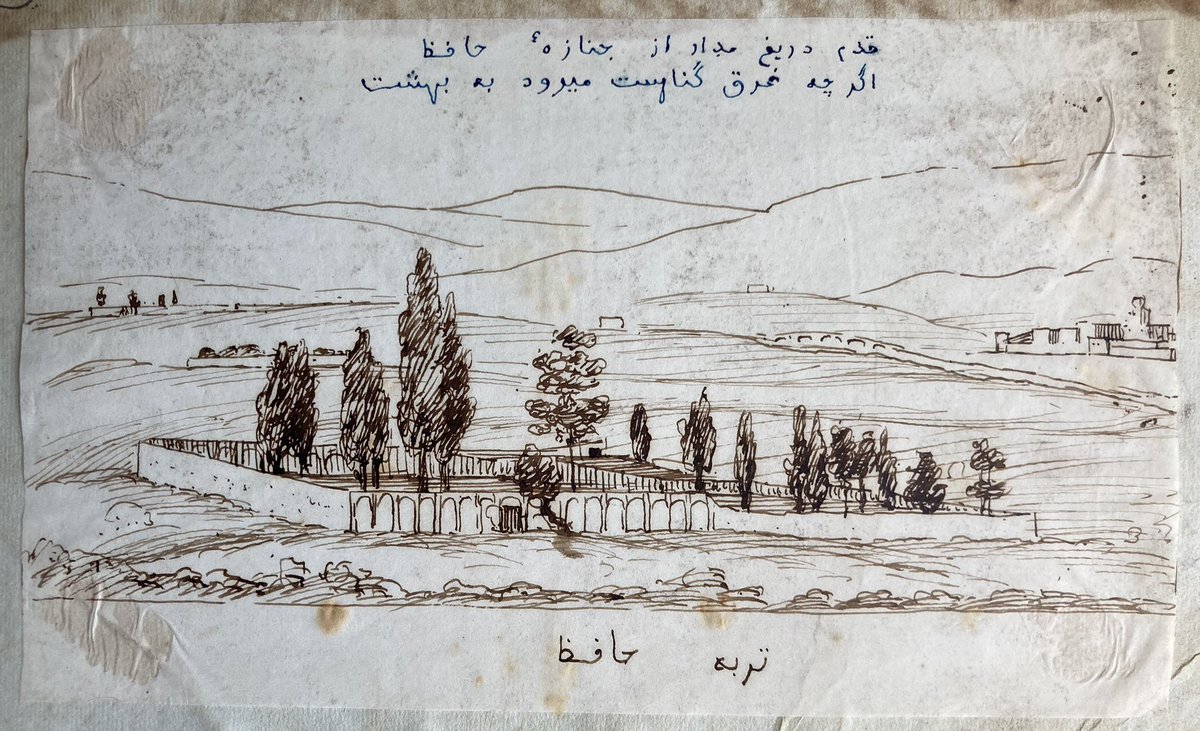 قدم دریغ مدار از جنازهٔ حافظ
اگر چه غرق گناهست میرود به بهشت
تربه حافظ